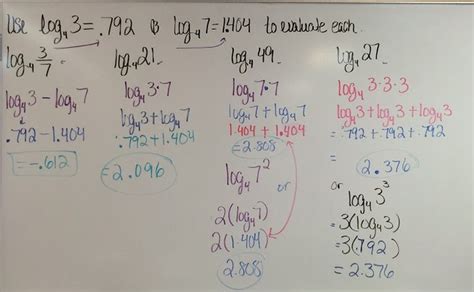 Use log₄3=.792 & log₄7=1.404 to evaluate each.
log₄ 3/7 =
log₄3 - log₄7
.792-1.404
=-.612
log₄21=
log₄3·7
log₄3+log₄7
.792+1.404
=2.096
log₄49=
log₄7·7
log₄7+log₄7
1.404+1.404
=2.808
or
log₄7²
2(log₄7)
2(1.404)
2.808
log₄27=
log₄3·3·3
log₄3+log₄3+log₄3
=.792+.792+.792
=
2.376
or
log₄3³
=3(log₄3)
=3(.792)
=2.376